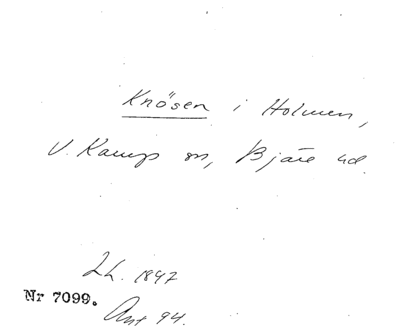 Knösen i Holmen,
V. Karup sn, Bjäre hd.
LL. 1847
Nr 7099.
Ant 94.